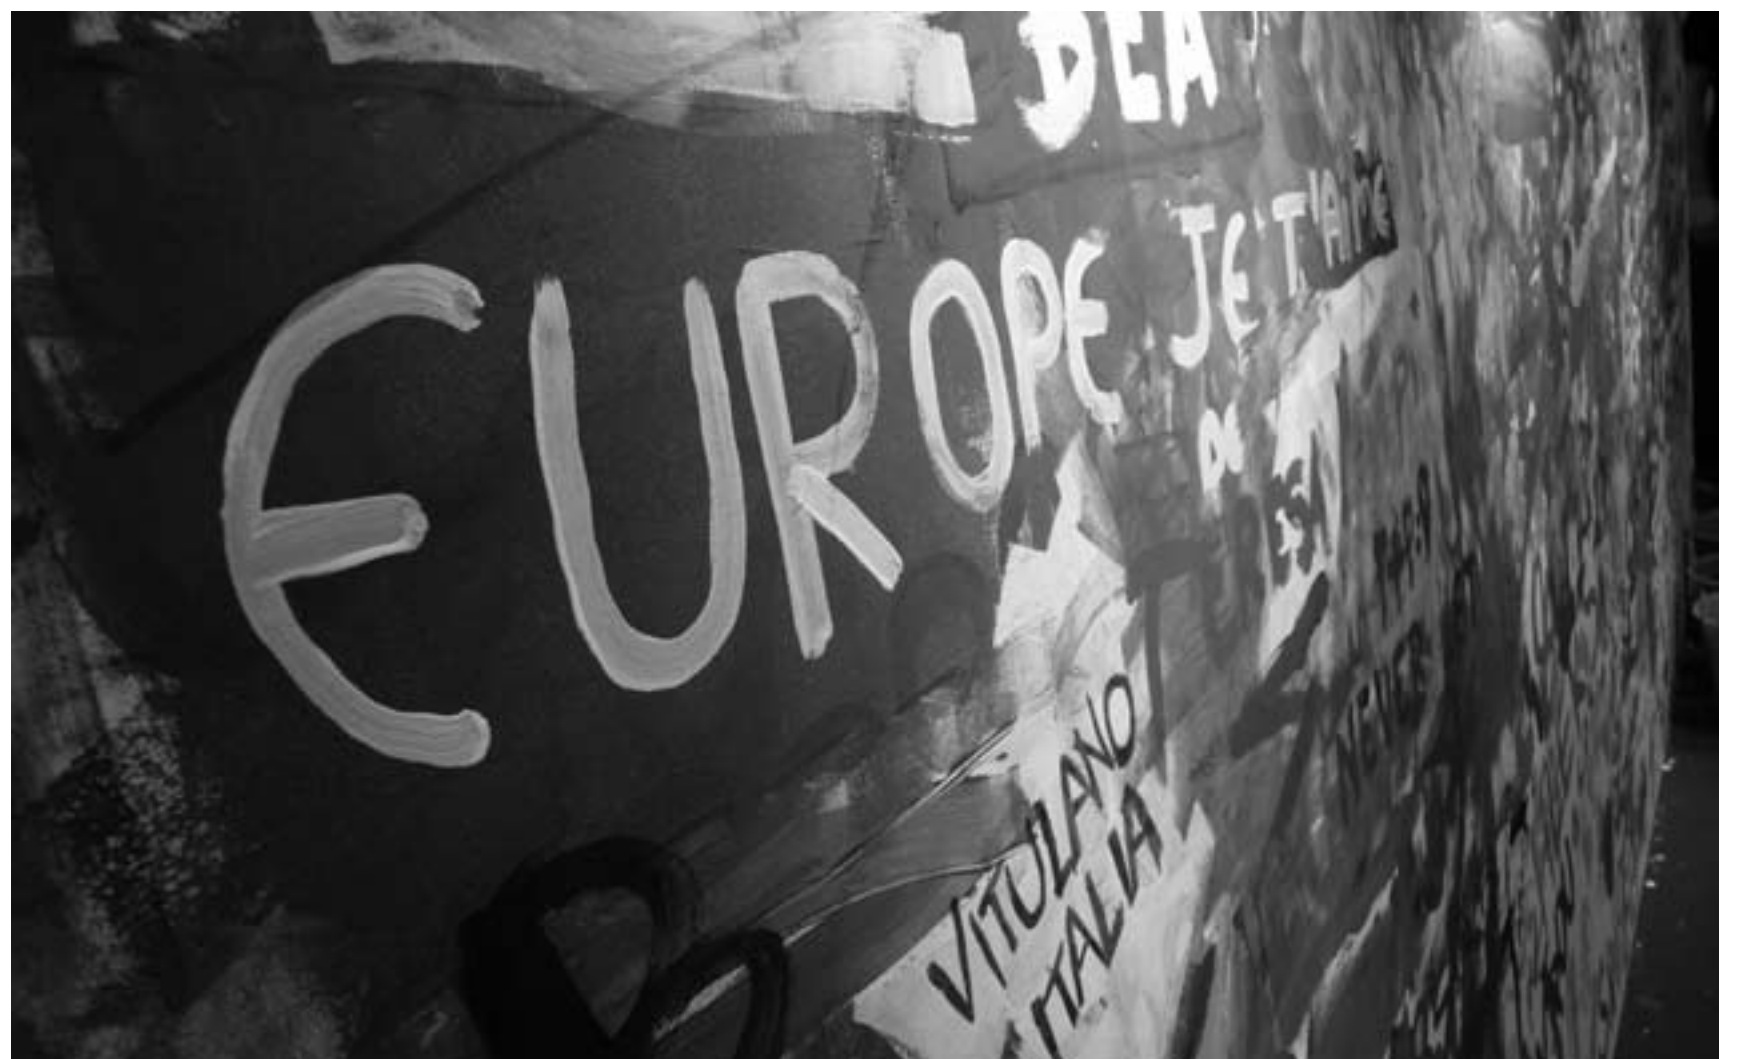 EUROPE JE T'AIME
DE
VITULANO
ITALIA
NEVER